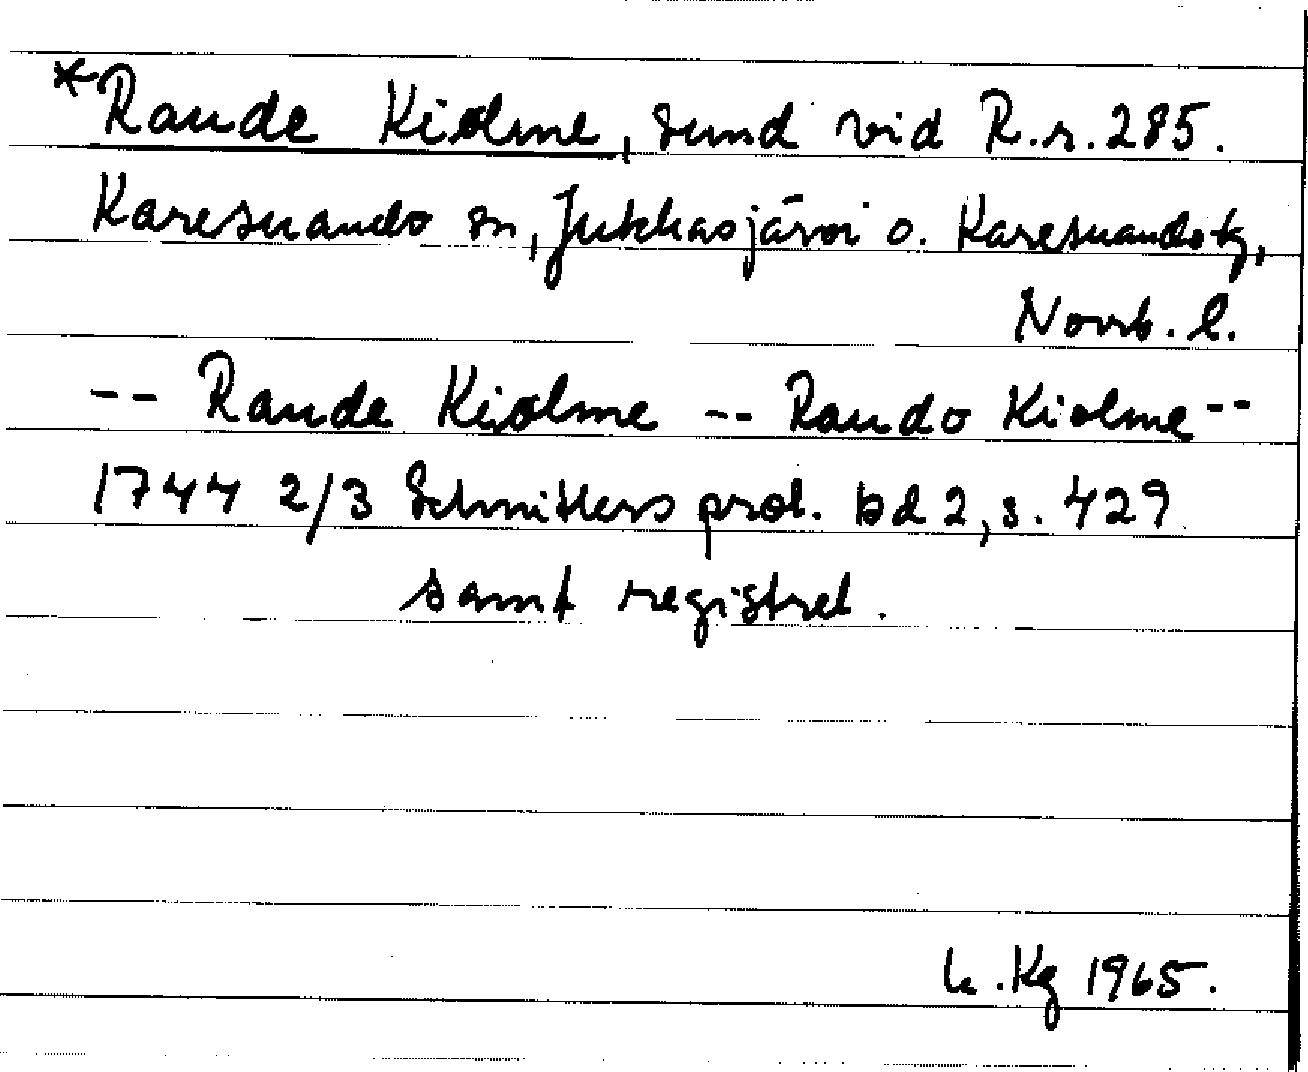 *Raude Kiolme, sund vid R.r. 285.
Karesuando sn, Jukkasjärvi o. Karesuando tg,
Norrb. l.
-- Raude Kiolme -- Raudo Kiolme --
1744 2/3 Schnitlers prot. bd 2, s. 429
samt registret.
Kg 1965.